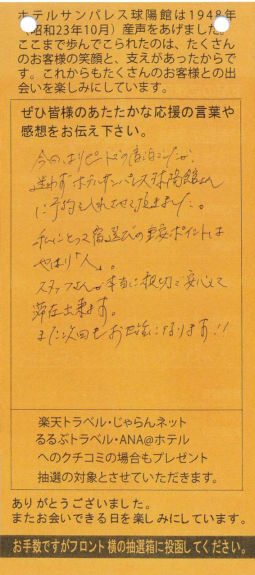 ホテルサンパレス球陽館は1948年
(昭和23年10月)産声をあげました。
ここまで歩んでこられたのは、たくさん
のお客様の笑顔と、支えがあったからで
す。これからもたくさんのお客様との出
会いを楽しみにしています。
ぜひ皆様のあたたかな応援の言葉や
感想をお伝え下さい。
今回はリピートの宿泊でしたが、
迷わずホテルサンパレス球陽館さん
に予約を入れさせて頂きました。
私にとって宿選びの重要ポイントは
やはり「人」。
スタッフさんが本当に親切で安心して
滞在出来ます。
また次回もお世話になります!!
楽天トラベル・じゃらんネット
るるぶトラベル・ANA@ホテル
へのクチコミの場合もプレゼント
抽選の対象とさせていただきます。
ありがとうございました。
またお会いできる日を楽しみにしています。
お手数ですがフロント横の抽選箱に投函してください。